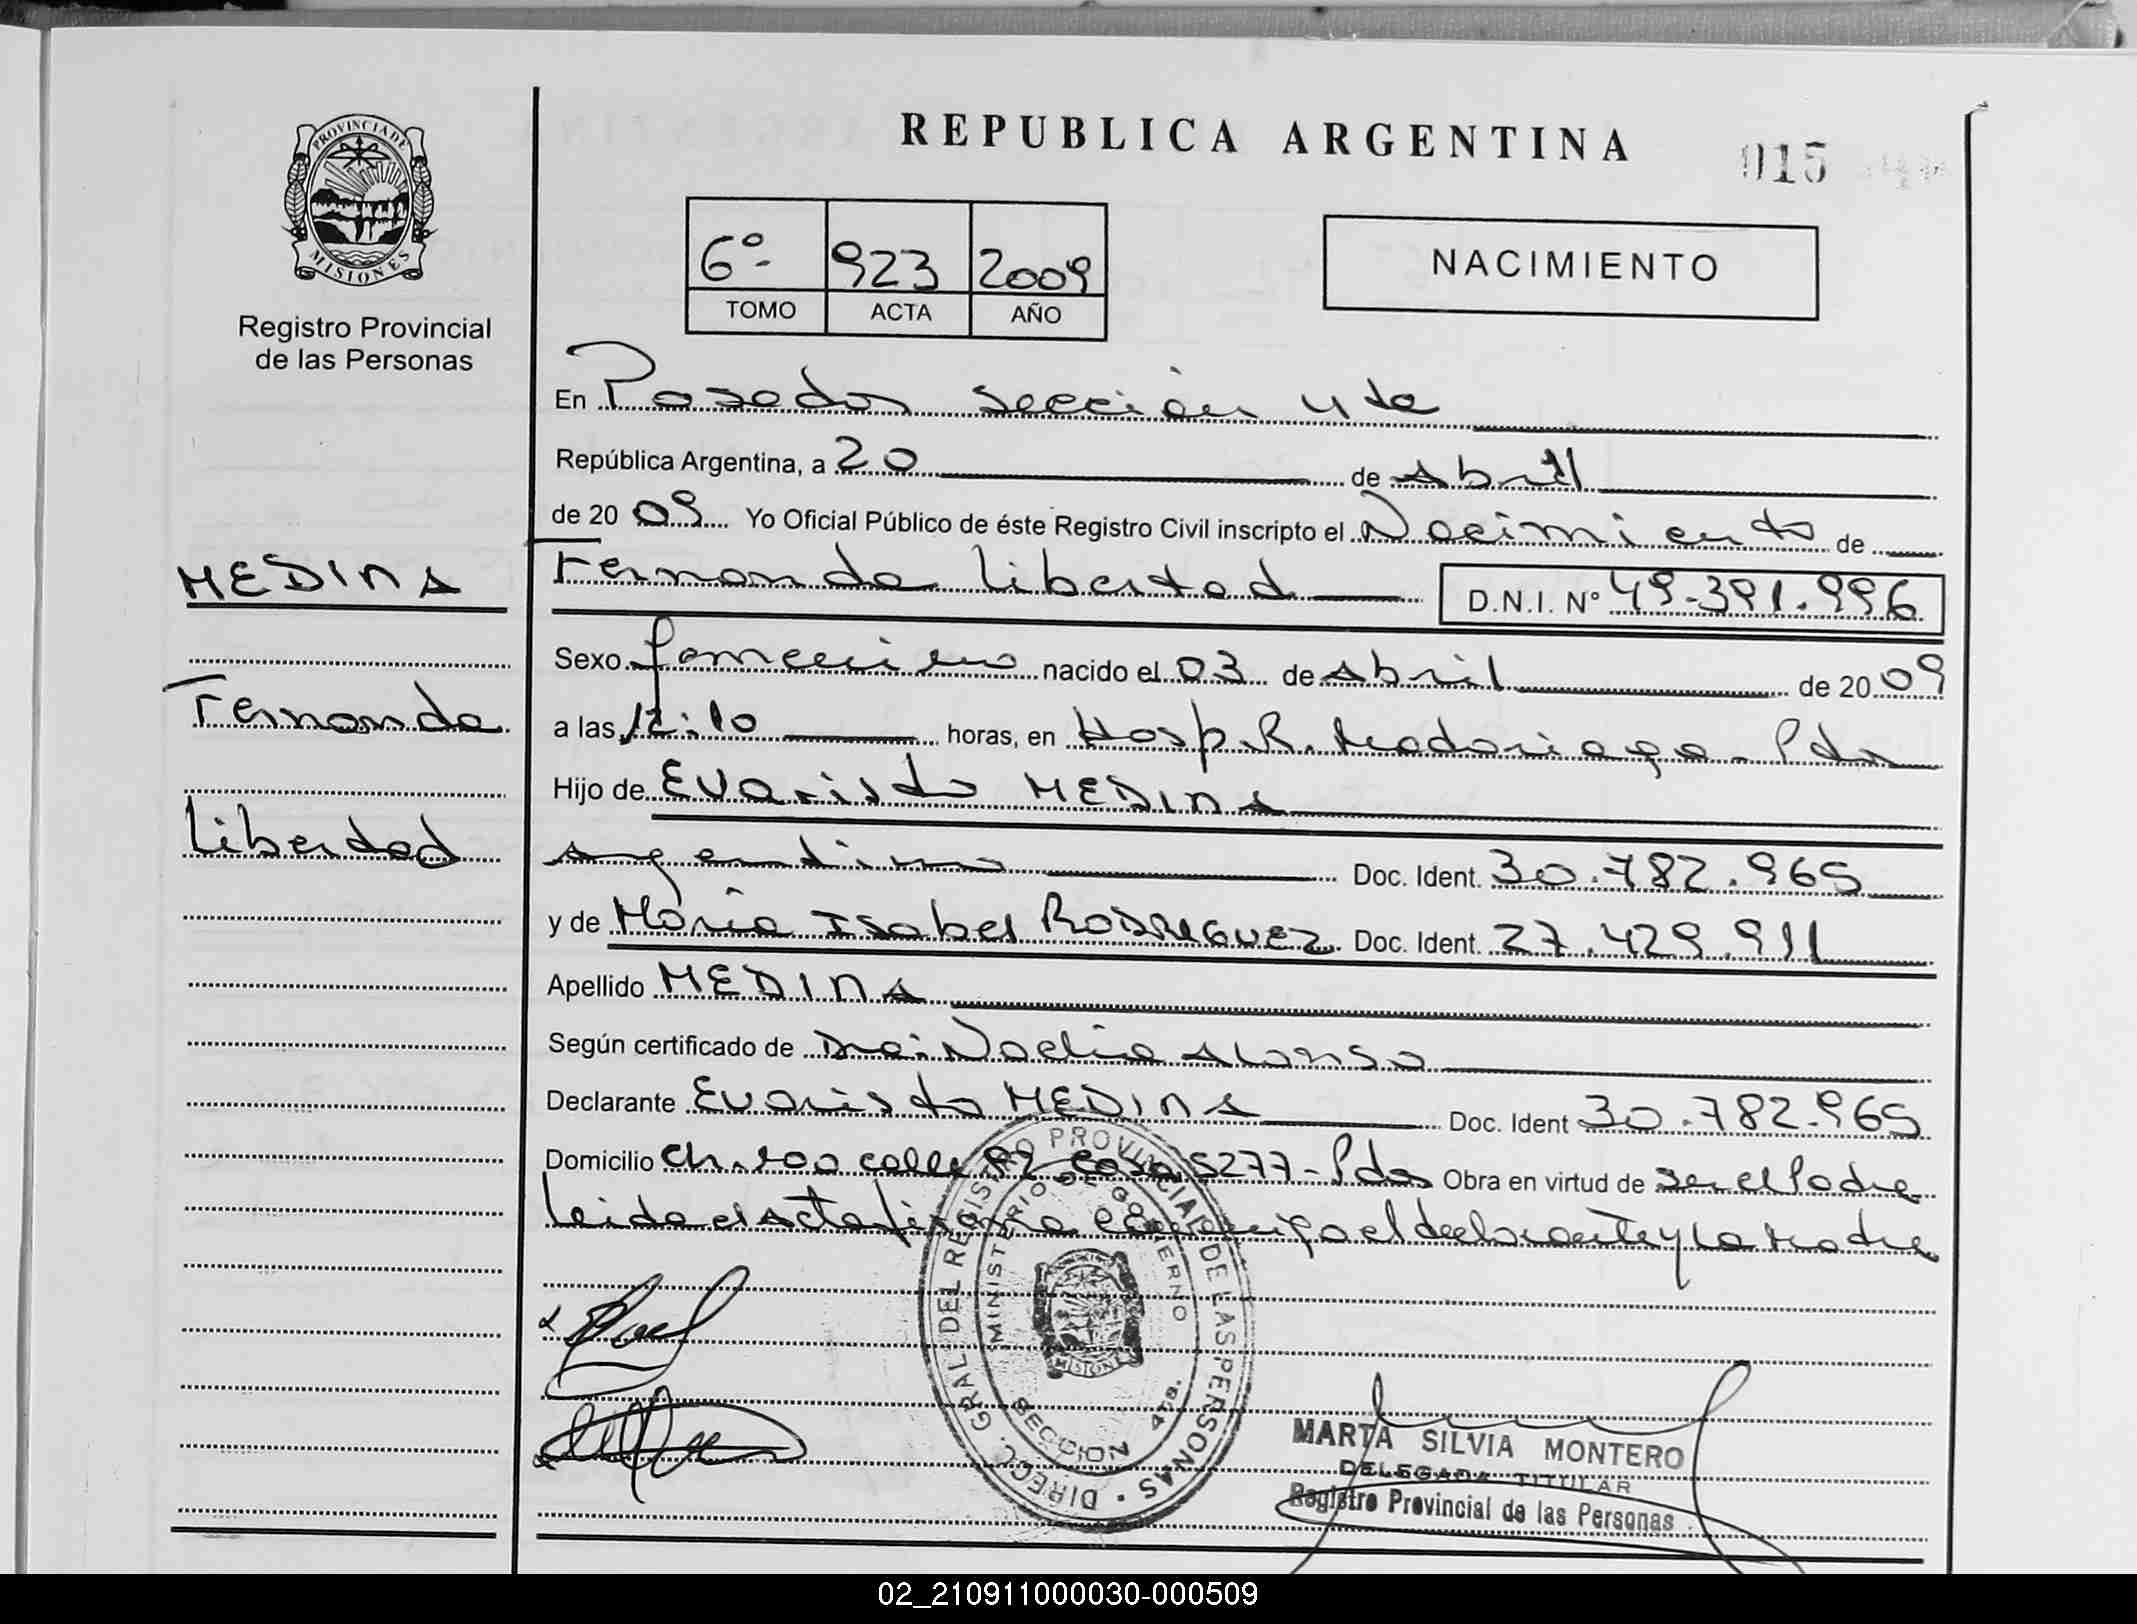 REPUBLICA ARGENTINA
915
PROVINCIA DE MISIONES
Registro Provincial
de las Personas
6º 923 2009
TOMO ACTA AÑO
NACIMIENTO
En Posadas sección 4ta
República Argentina, a 20 de Abril
de 2009 Yo Oficial Público de éste Registro Civil inscripto el Nacimiento de
Fernanda Libertad D.N.I. Nº 49.391.996
MEDINA
Fernanda
Libertad
Sexo femenino nacido el 03 de Abril de 2009
a las 12:10 horas, en Hosp. R. Madariaga - Pdas
Hijo de Evaristo MEDINA
argentino Doc. Ident. 30.782.965
y de María Isabel RODRIGUEZ Doc. Ident. 27.429.911
Apellido MEDINA
Según certificado de Dra: Noelia Alonso
Declarante Evaristo MEDINA Doc. Ident 30.782.965
Domicilio Ch. 100 calle casa 5277 - Pdas Obra en virtud de ser el Padre
Leida el Acta firma conmigo el declarante y La Madre
DIRECC. GRAL. DEL REGISTRO PROVINCIAL DE LAS PERSONAS
MINISTERIO DE GOBIERNO
MISIONES
SECCION 4ta.
MARTA SILVIA MONTERO
DELEGADA TITULAR
Registro Provincial de las Personas
02_210911000030-000509